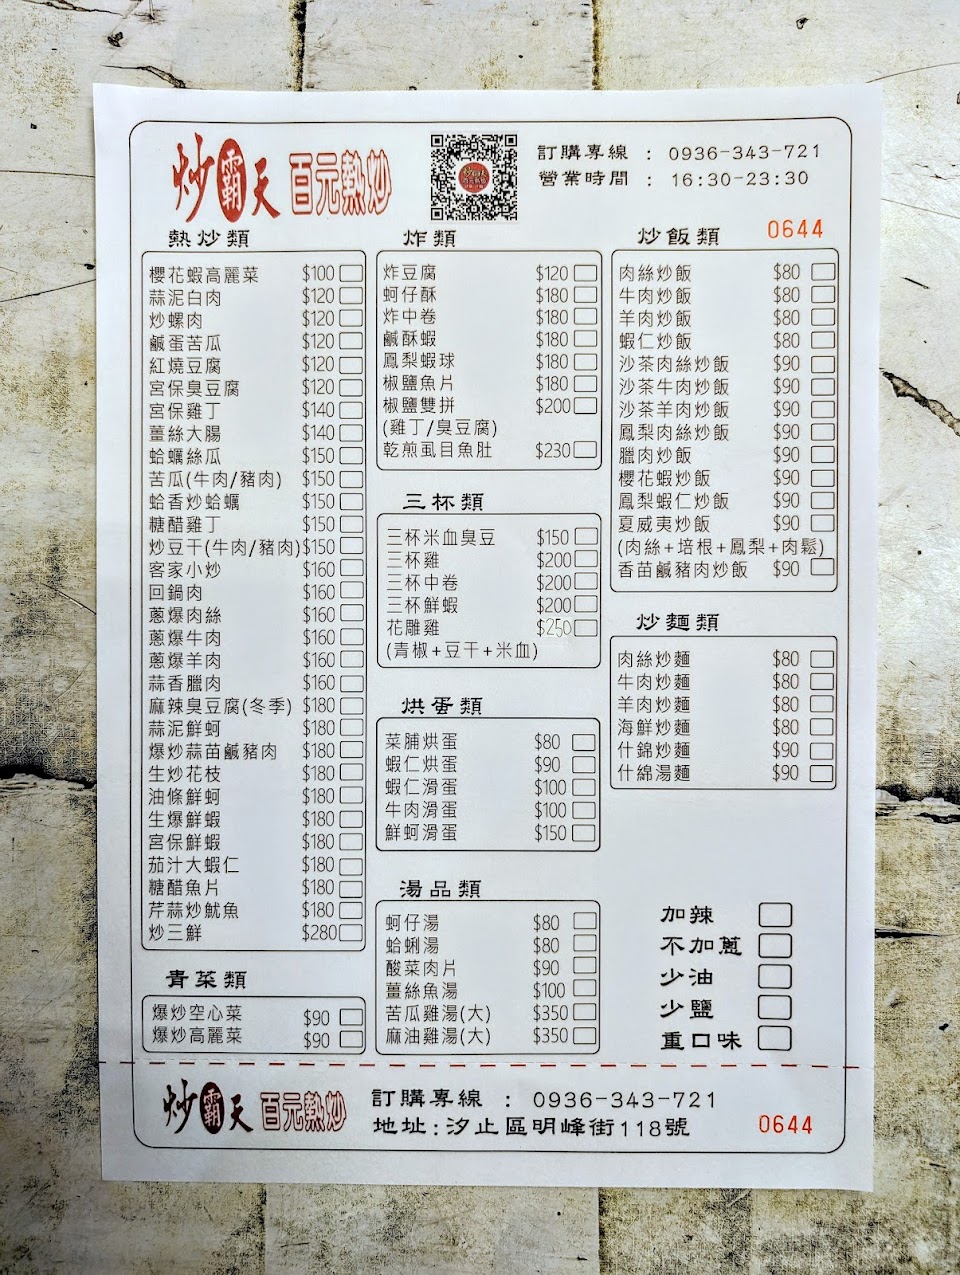 炒霸天 百元熱炒
訂購專線 : 0936-343-721
營業時間 : 16:30-23:30
0644
熱炒類
櫻花蝦高麗菜 $100
蒜泥白肉 $120
炒螺肉 $120
鹹蛋苦瓜 $120
紅燒豆腐 $120
宮保臭豆腐 $120
宮保雞丁 $140
薑絲大腸 $140
蛤蠣絲瓜 $150
苦瓜(牛肉/豬肉) $150
蛤香炒蛤蠣 $150
糖醋雞丁 $150
炒豆干(牛肉/豬肉) $150
客家小炒 $160
回鍋肉 $160
蔥爆肉絲 $160
蔥爆牛肉 $160
蔥爆羊肉 $160
蒜香臘肉 $160
麻辣臭豆腐(冬季) $180
蒜泥鮮蚵 $180
爆炒蒜苗鹹豬肉 $180
生炒花枝 $180
油條鮮蚵 $180
生爆鮮蝦 $180
宮保鮮蝦 $180
茄汁大蝦仁 $180
糖醋魚片 $180
芹蒜炒魷魚 $180
炒三鮮 $280
青菜類
爆炒空心菜 $90
爆炒高麗菜 $90
炸類
炸豆腐 $120
蚵仔酥 $180
炸中卷 $180
鹹酥蝦 $180
鳳梨蝦球 $180
椒鹽魚片 $180
椒鹽雙拼 $200
(雞丁/臭豆腐)
乾煎虱目魚肚 $230
三杯類
三杯米血臭豆 $150
三杯雞 $200
三杯中卷 $200
三杯鮮蝦 $200
花雕雞 $250
(青椒+豆干+米血)
烘蛋類
菜脯烘蛋 $80
蝦仁烘蛋 $90
蝦仁滑蛋 $100
牛肉滑蛋 $100
鮮蚵滑蛋 $150
湯品類
蚵仔湯 $80
蛤蜊湯 $80
酸菜肉片 $90
薑絲魚湯 $100
苦瓜雞湯(大) $350
麻油雞湯(大) $350
炒飯類
肉絲炒飯 $80
牛肉炒飯 $80
羊肉炒飯 $80
蝦仁炒飯 $80
沙茶肉絲炒飯 $90
沙茶牛肉炒飯 $90
沙茶羊肉炒飯 $90
鳳梨肉絲炒飯 $90
臘肉炒飯 $90
櫻花蝦炒飯 $90
鳳梨蝦仁炒飯 $90
夏威夷炒飯 $90
(肉絲+培根+鳳梨+肉鬆)
香苗鹹豬肉炒飯 $90
炒麵類
肉絲炒麵 $80
牛肉炒麵 $80
羊肉炒麵 $80
海鮮炒麵 $80
什錦炒麵 $90
什綿湯麵 $90
加辣
不加蔥
少油
少鹽
重口味
炒霸天 百元熱炒
訂購專線 : 0936-343-721
地址:汐止區明峰街118號
0644